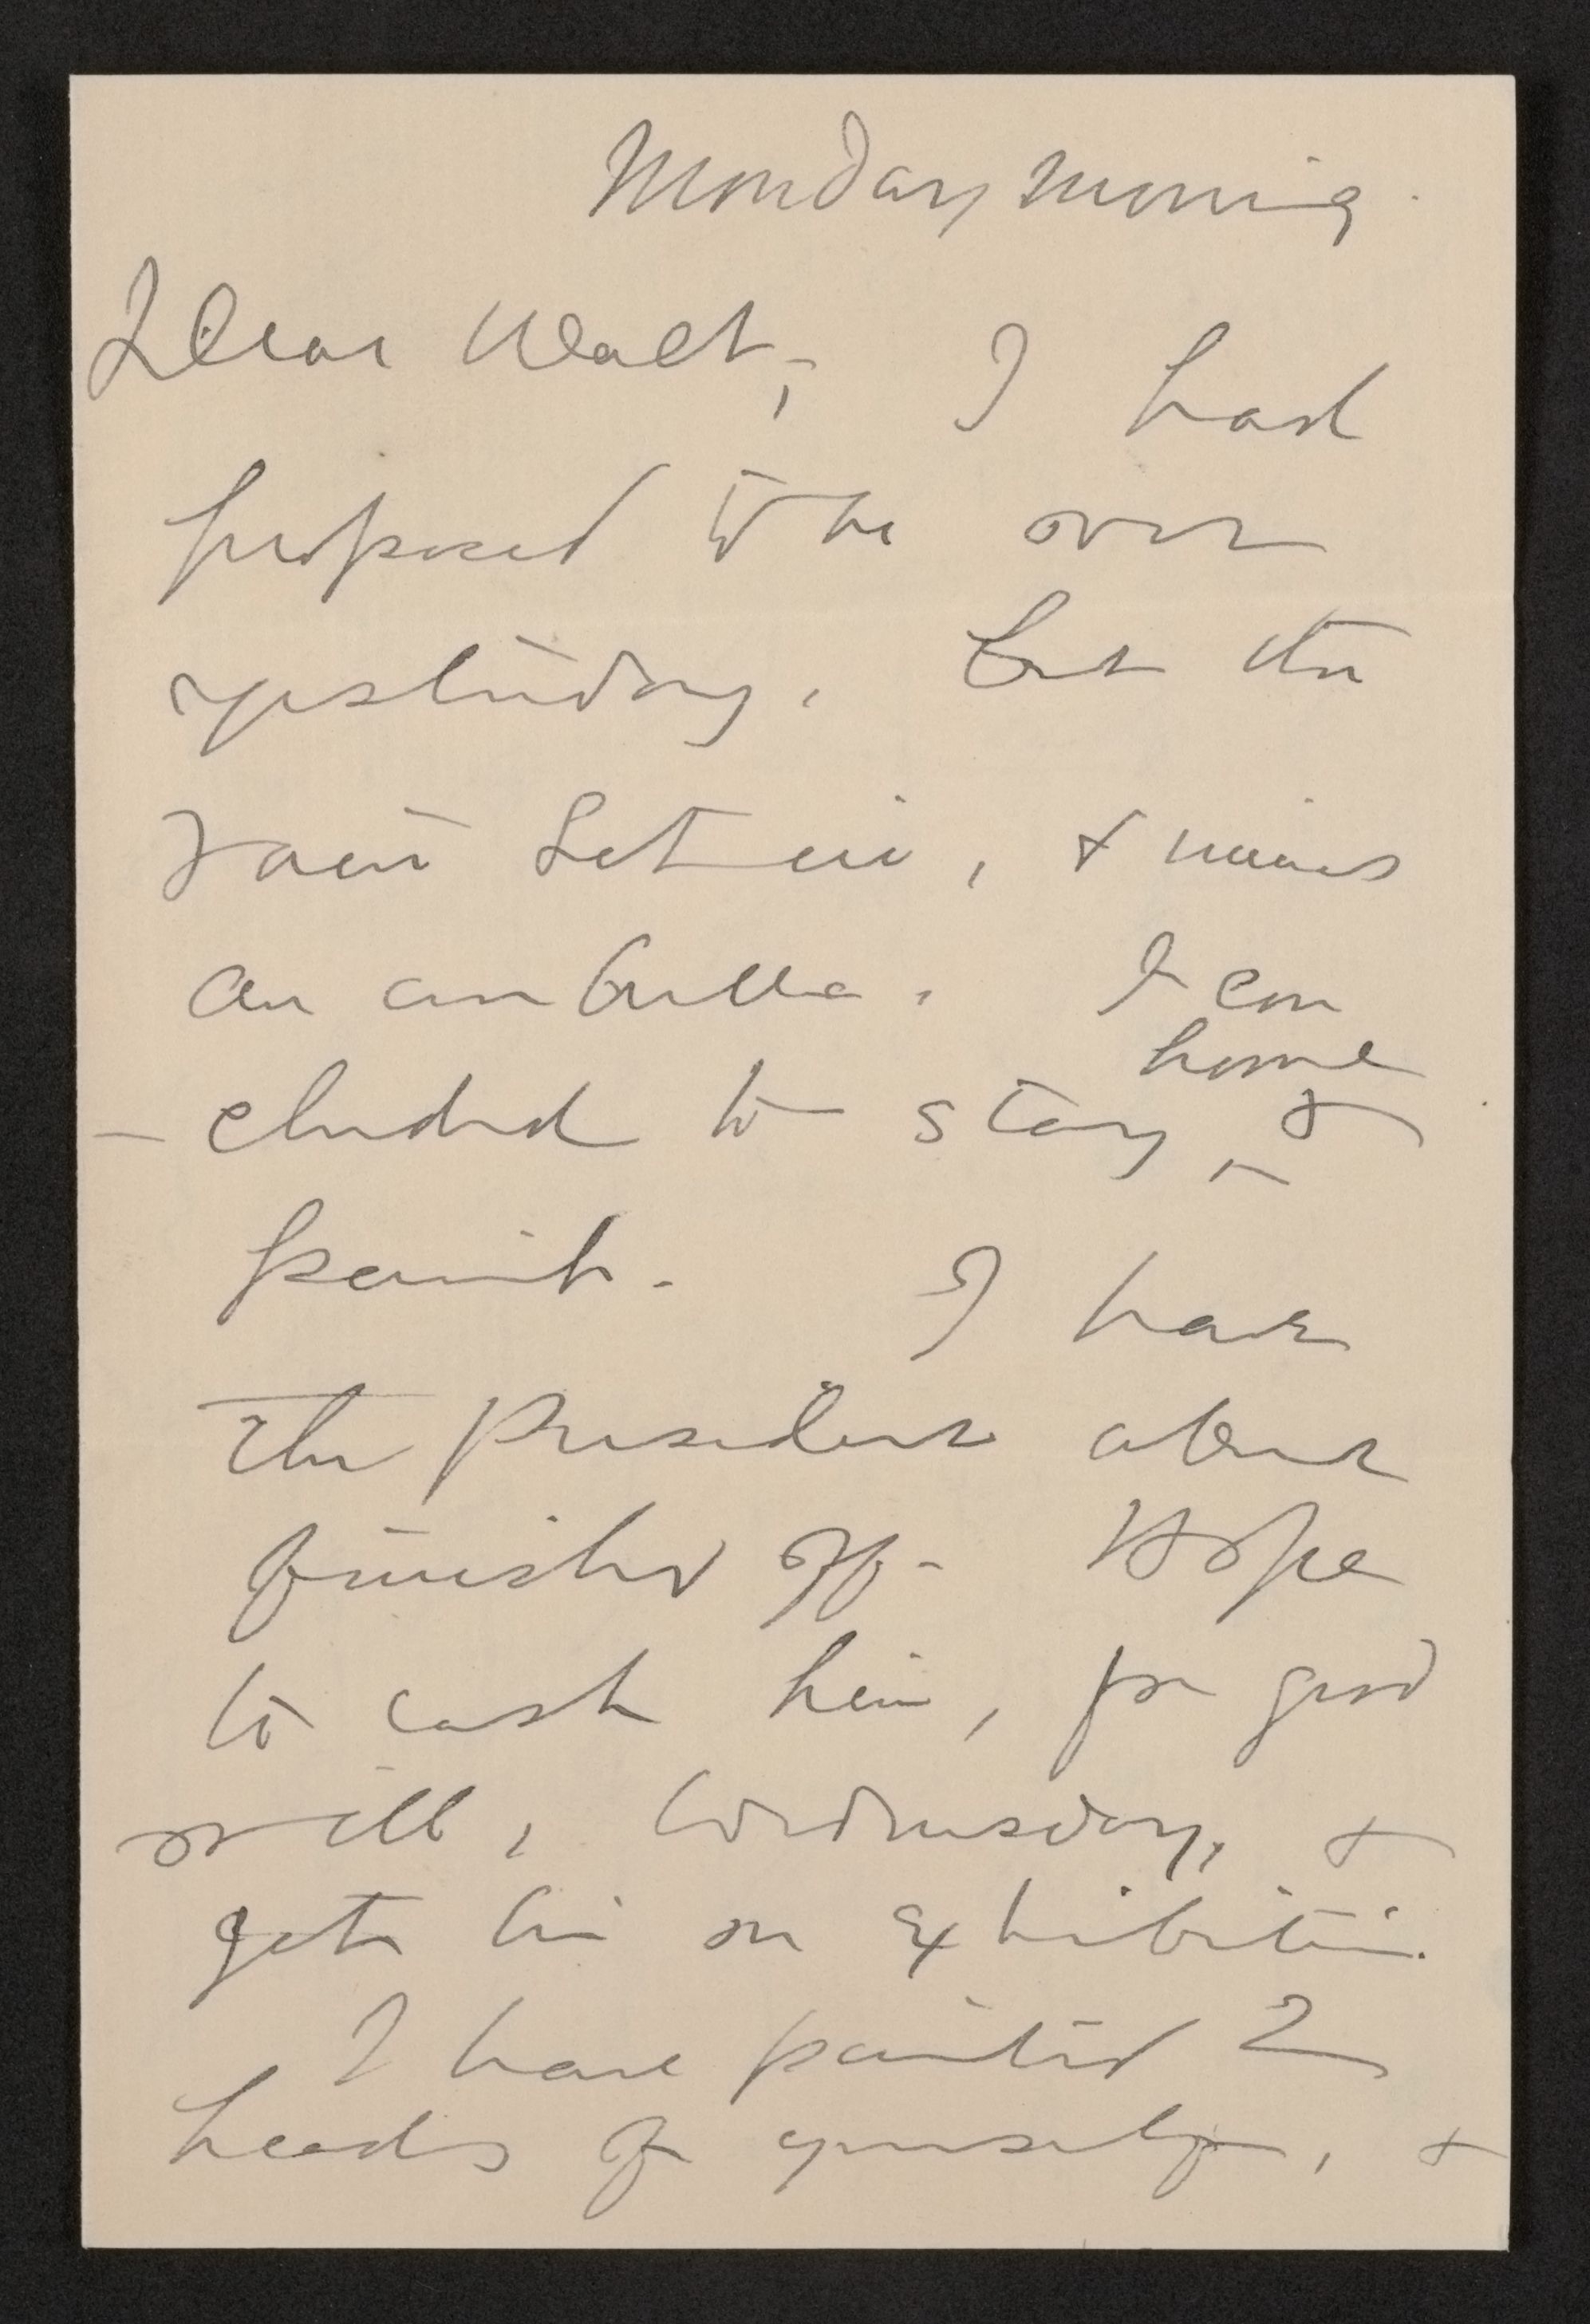 Monday morning.
Dear Walt, I had
proposed to be over
yesterday, but the
rain set in, & minus
an umbrella, I con
home
- cluded to stay, &
paint. I have
the President about
finished off. Hope
to cast him, for good
or ill, Wednesday, &
get him on exhibition.
I have painted 2
heads of yourself, &